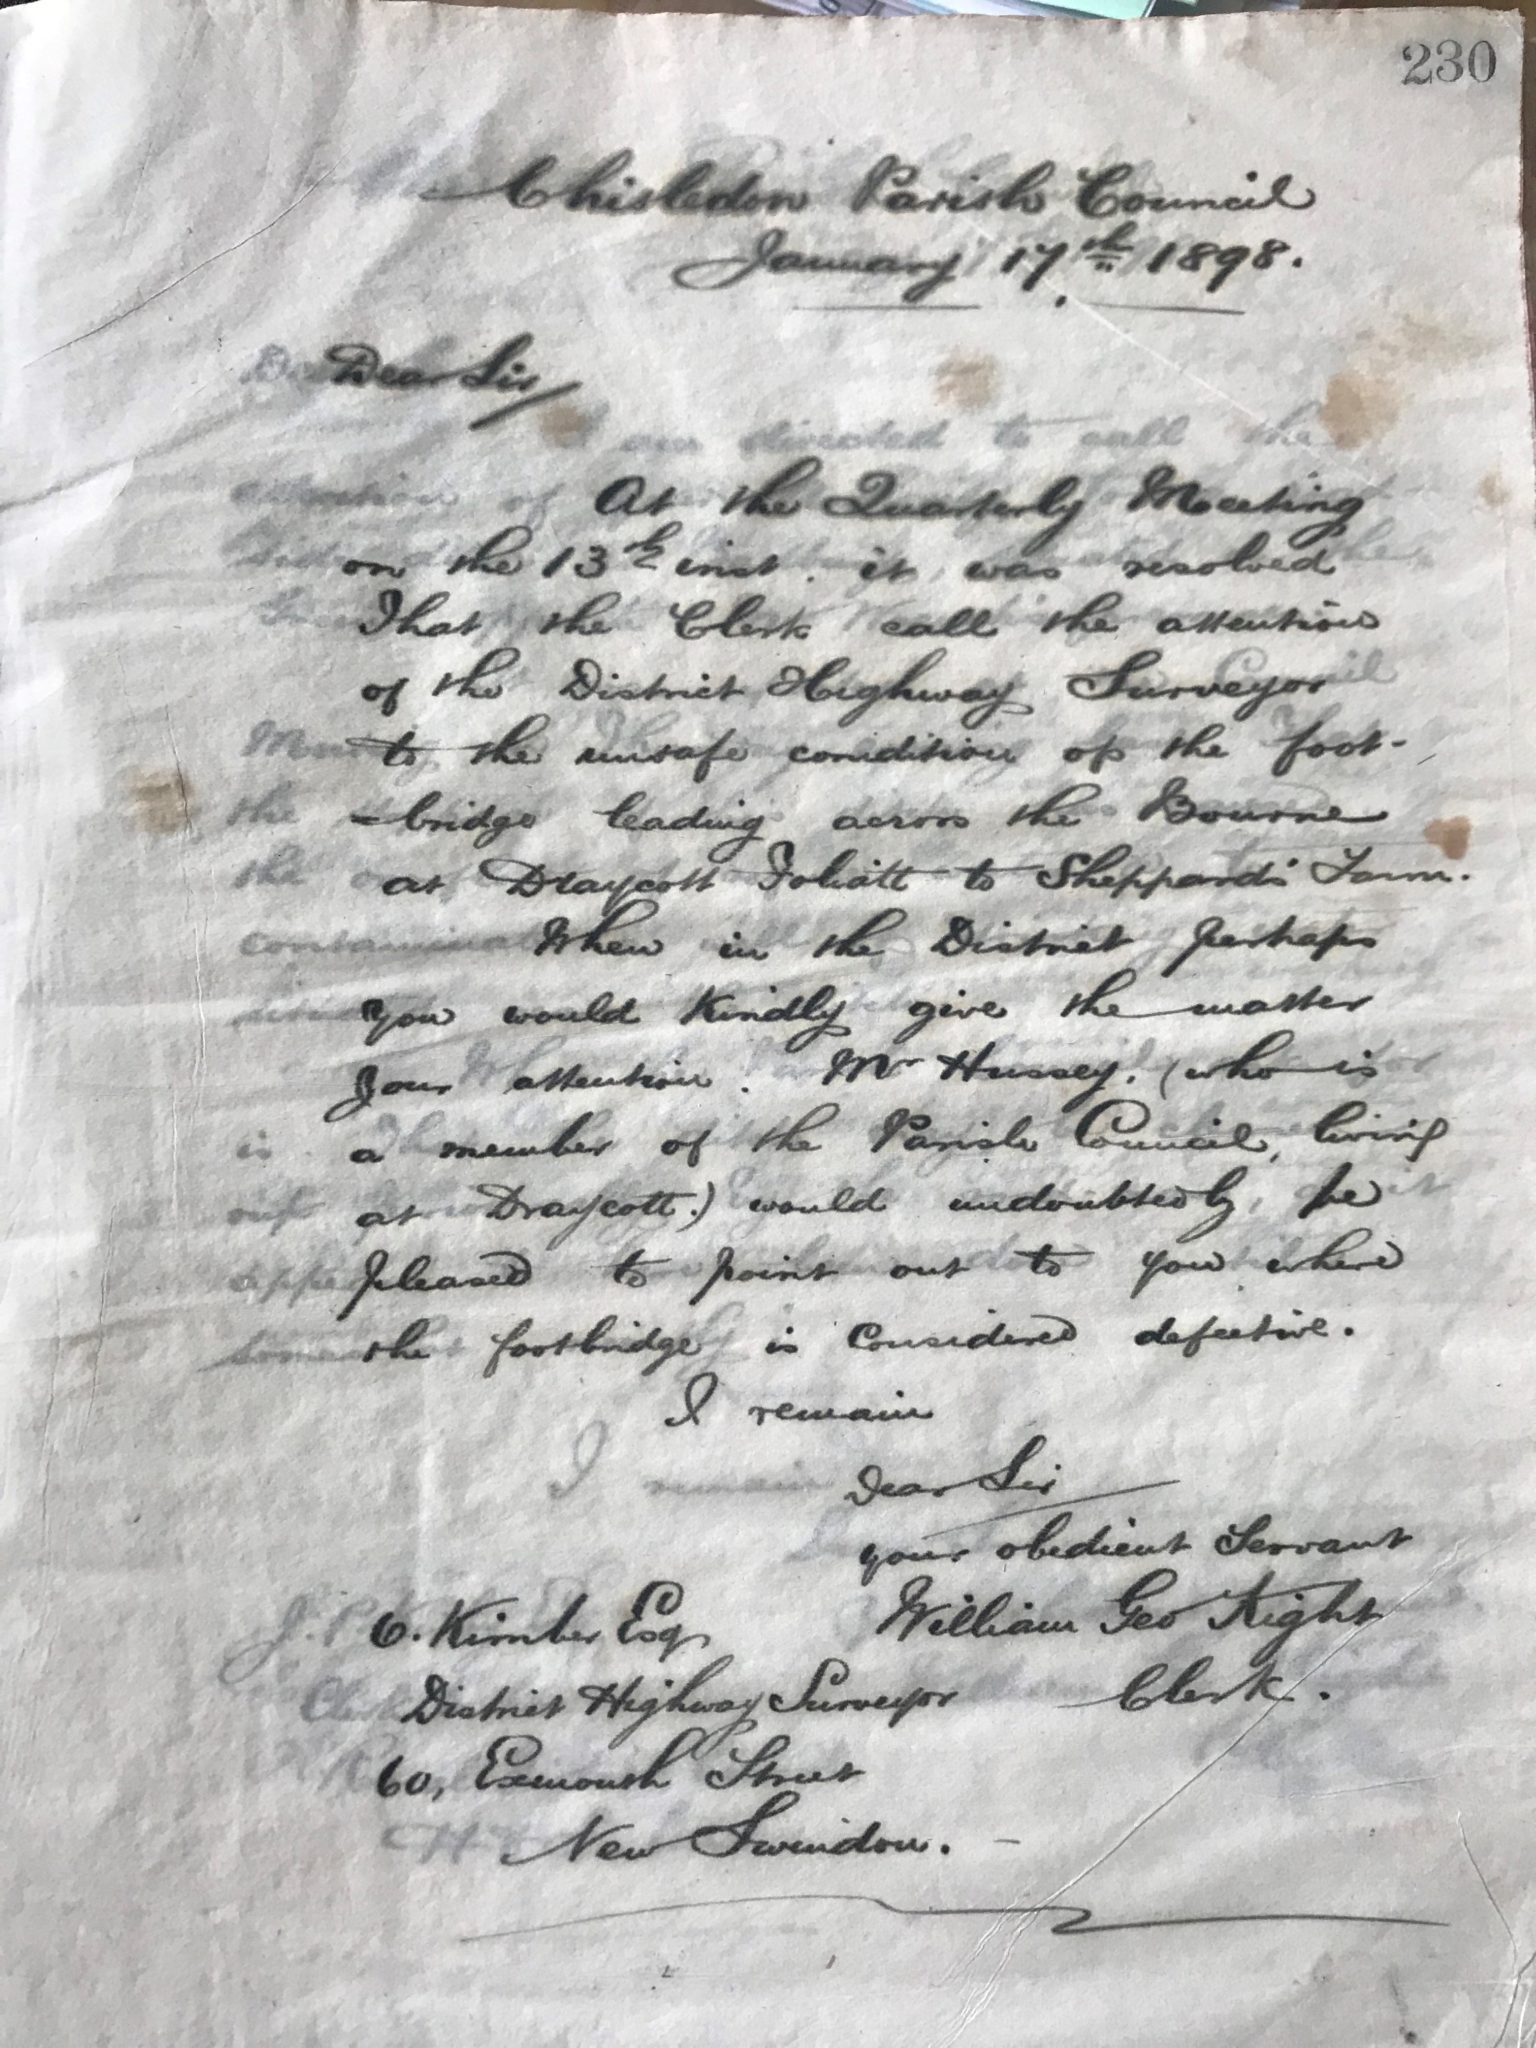 230
Chisledon Parish Council
January 17th 1898.
Dear Sir
At the Quarterly Meeting
on the 13th inst. it was resolved
That the Clerk call the attention
of the District Highway Surveyor
to the unsafe condition of the foot-
=bridge leading across the Bourne
at Draycott Foliatt to Sheppard's Farm.
When in the District perhaps
you would kindly give the matter
your attention. Mr Hussey, (who is
a member of the Parish Council, living
at Draycott.) would undoubtedly be
pleased to point out to you where
the footbridge is considered defective.
I remain
Dear Sir
your obedient Servant
William Geo Kight
Clerk.
Kimber Esq
District Highway Surveyor
60, Exmouth Street
New Swindon.